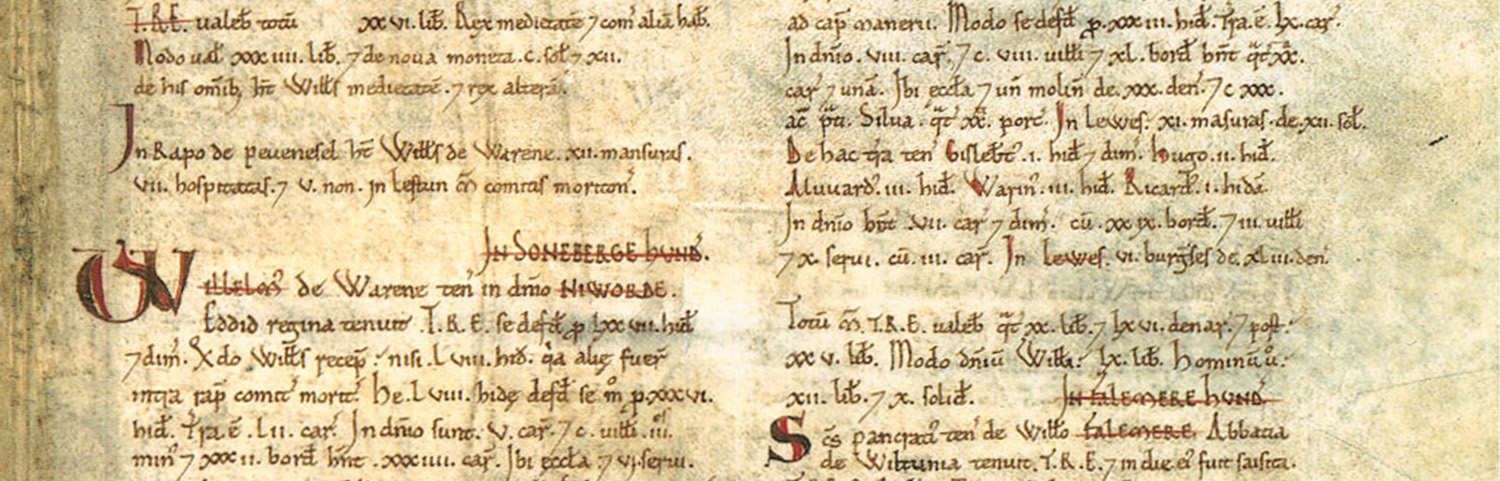 T.R.E. ualeb̄ totū xxvi. lib̄. Rex medietatē ⁊ com̄ aliā hab̄.
Modo ual xxxiiii. lib̄. ⁊ de noua moneta. c. sol̄ ⁊ xii.
de his om̄ib; ht̄ Wilłs medietatē. ⁊ rex alterā.
In Rapo de peuenesel ht̄ Wilłs de Warene. xii. mansuras.
vii. hospitatas. ⁊ v. non. In lestun m̄ comitis moriton̄.
In Soneberge hvnd̄.
Willelm̄ de Warene ten̄ in dn̄io Niworde.
Eddid regina tenuit. T.R.E. se defd̄ p̱ lxxvii. hid̄
⁊ dim̄. Qdo Wilłs recep̄: nisi. l viii. hid̄. q̇a alię fuer̄
intra rap̄ comit̄ morit̄. He. l viii. hidę defd̄ se m̊ p̱ xxxvi.
hid̄. Tr̄a. ē. lii. car̄. In dn̄io sunt. v. car̄. ⁊ c. uilłi .iii.
min̄ ⁊ xxxii. bord̄ hn̄t. xxxiiii. car̄. Ibi eccła. ⁊ vi. serui.
ad cap̄ manerii. Modo se defd̄ p̱ xxxiii. hid̄. Tr̄a. ē. lx. car̄.
In dn̄io. viii. car̄. ⁊ c. viii. uilłi ⁊ xl. bord̄ hn̄t qͣt xx.
car̄ ⁊ unā. Ibi eccła ⁊ un̄ molin̄ de. xxx. den̄. ⁊ c xxx.
ac̄ pͣti. Silua. qͣt xx. porc̄. In Lewes. xi. masuras. de. xii. sol̄.
De hac tr̄a ten̄ Gislebt̄. i. hid̄ ⁊ dim̄. hugo. ii. hid̄.
Aluuard̄. iii. hid̄. Warin̄. iii. hid̄. Ricard̄. i. hidā.
In dn̄io hn̄t. vii. car̄ ⁊ dim̄. cū. xxix. bord̄. ⁊ iii. uilłi
⁊ x. serui. cū. iii. car̄. In lewes. vi. burg̃ses de. xliii. den̄.
Totū m̄. T.R.E. ualeb̄ qͣt xx. lib̄. ⁊ lxvi. denar̄. ⁊ post:
xxv. lib̄. Modo dn̄iū Wilłi: lx. lib̄. Hominū ů:
xii. lib̄. ⁊ x. solid̄.
In Falemere hvnd̄.
Sc̄s pancrati ten̄ de Wiłło Falemere. Abbatia
de Wiltunia tenuit. T.R.E. ⁊ in die ei᷒ fuit saisita.